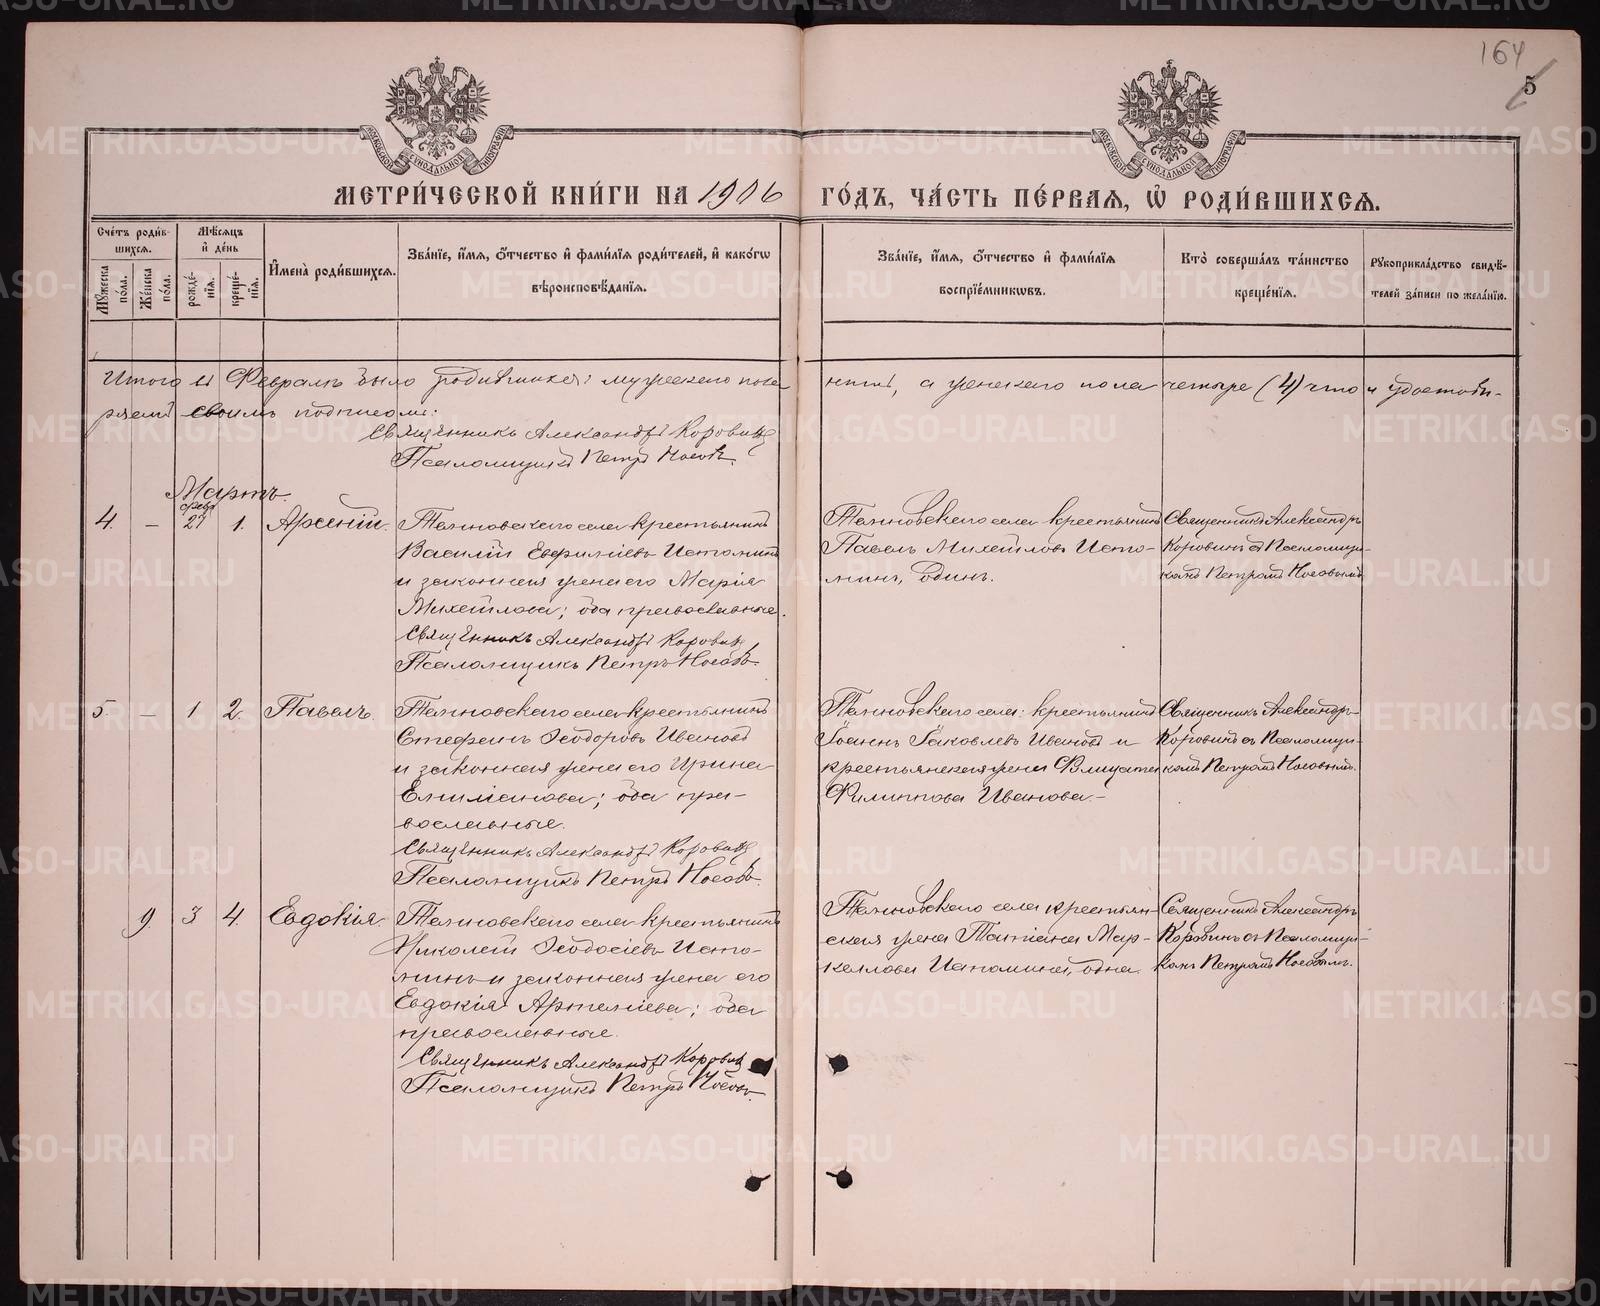 164
5
МОСКОВСКОЙ СУНОДАЛЬНОЙ ТИПОГРАФІИ
МОСКОВСКОЙ СУНОДАЛЬНОЙ ТИПОГРАФІИ
МЕТРИ́ЧЕСКОЙ КНИ́ГИ НА 1906 ГО́ДЪ, ЧА́СТЬ ПЕ́РВАЯ, Ѽ РОДИ́ВШИХСЯ.
Сче́тъ роди́вшихся.
Му́жеска по́ла.
Же́нска по́ла.
Мѣ́сяцъ и҆ де́нь
рожде́нїя.
креще́нїя.
И҆мена̀ роди́вшихся.
Зва́нїе, и҆́мя, ѻ҆́тчество и҆ фами́лїя роди́телей, и҆ како́гѡ
вѣроисповѣ́данїя.
Зва́нїе, и҆́мя, ѻ҆́тчество и҆ фами́лїя
воспрїе́мникѡвъ.
Кто̀ соверша́лъ та́инство
креще́нїя.
Рукоприкла́дство свидѣ́-
телей за́писи по жела́нїю.
Итого въ Февралѣ было родившихся: мужескаго пола
а женскаго пола четыре (4) что и удостовѣ-
ряемъ своимъ подписомъ:
Священникъ Александръ Коровинъ
Псаломщикъ Петръ Носовъ.
Мартъ.
4. – февр 27 1. Арсеній.
крестьянинъ
Василій Истоминъ
и законная жена его Марія
Михайлова; оба православные.
Священникъ Александръ Коровинъ
Псаломщикъ Петръ Носовъ.
села крестьянинъ
Павелъ Михайловъ Исто-
минъ, одинъ.
Священникъ Александръ
Коровинъ съ Псаломщи-
комъ Петромъ Носовымъ
5. – 1 2. Павелъ.
села крестьянинъ
Стефанъ Ѳеодоровъ Ивановъ
и законная жена его Ирина
оба пра-
вославные.
Священникъ Александръ Коровинъ
Псаломщикъ Петръ Носовъ.
села: крестьянинъ
Іоаннъ Іаковлевъ Ивановъ и
крестьянская жена
Филиппова Иванова. –
Священникъ Александръ
Коровинъ съ Псаломщи-
комъ Петромъ Носовымъ.
9. 3 4. Евдокія.
села крестьянинъ
Николай Ѳеодосіевъ Исто-
минъ и законная жена его
Евдокія оба
православные.
Священникъ Александръ Коровинъ
Псаломщикъ Петръ Носовъ.
села крестьян-
ская жена Татіана Мар-
келлова Истомина, одна.
Священникъ Александръ
Коровинъ съ Псаломщи-
комъ Петромъ Носовымъ.
METRIKI.GASO-URAL.RU